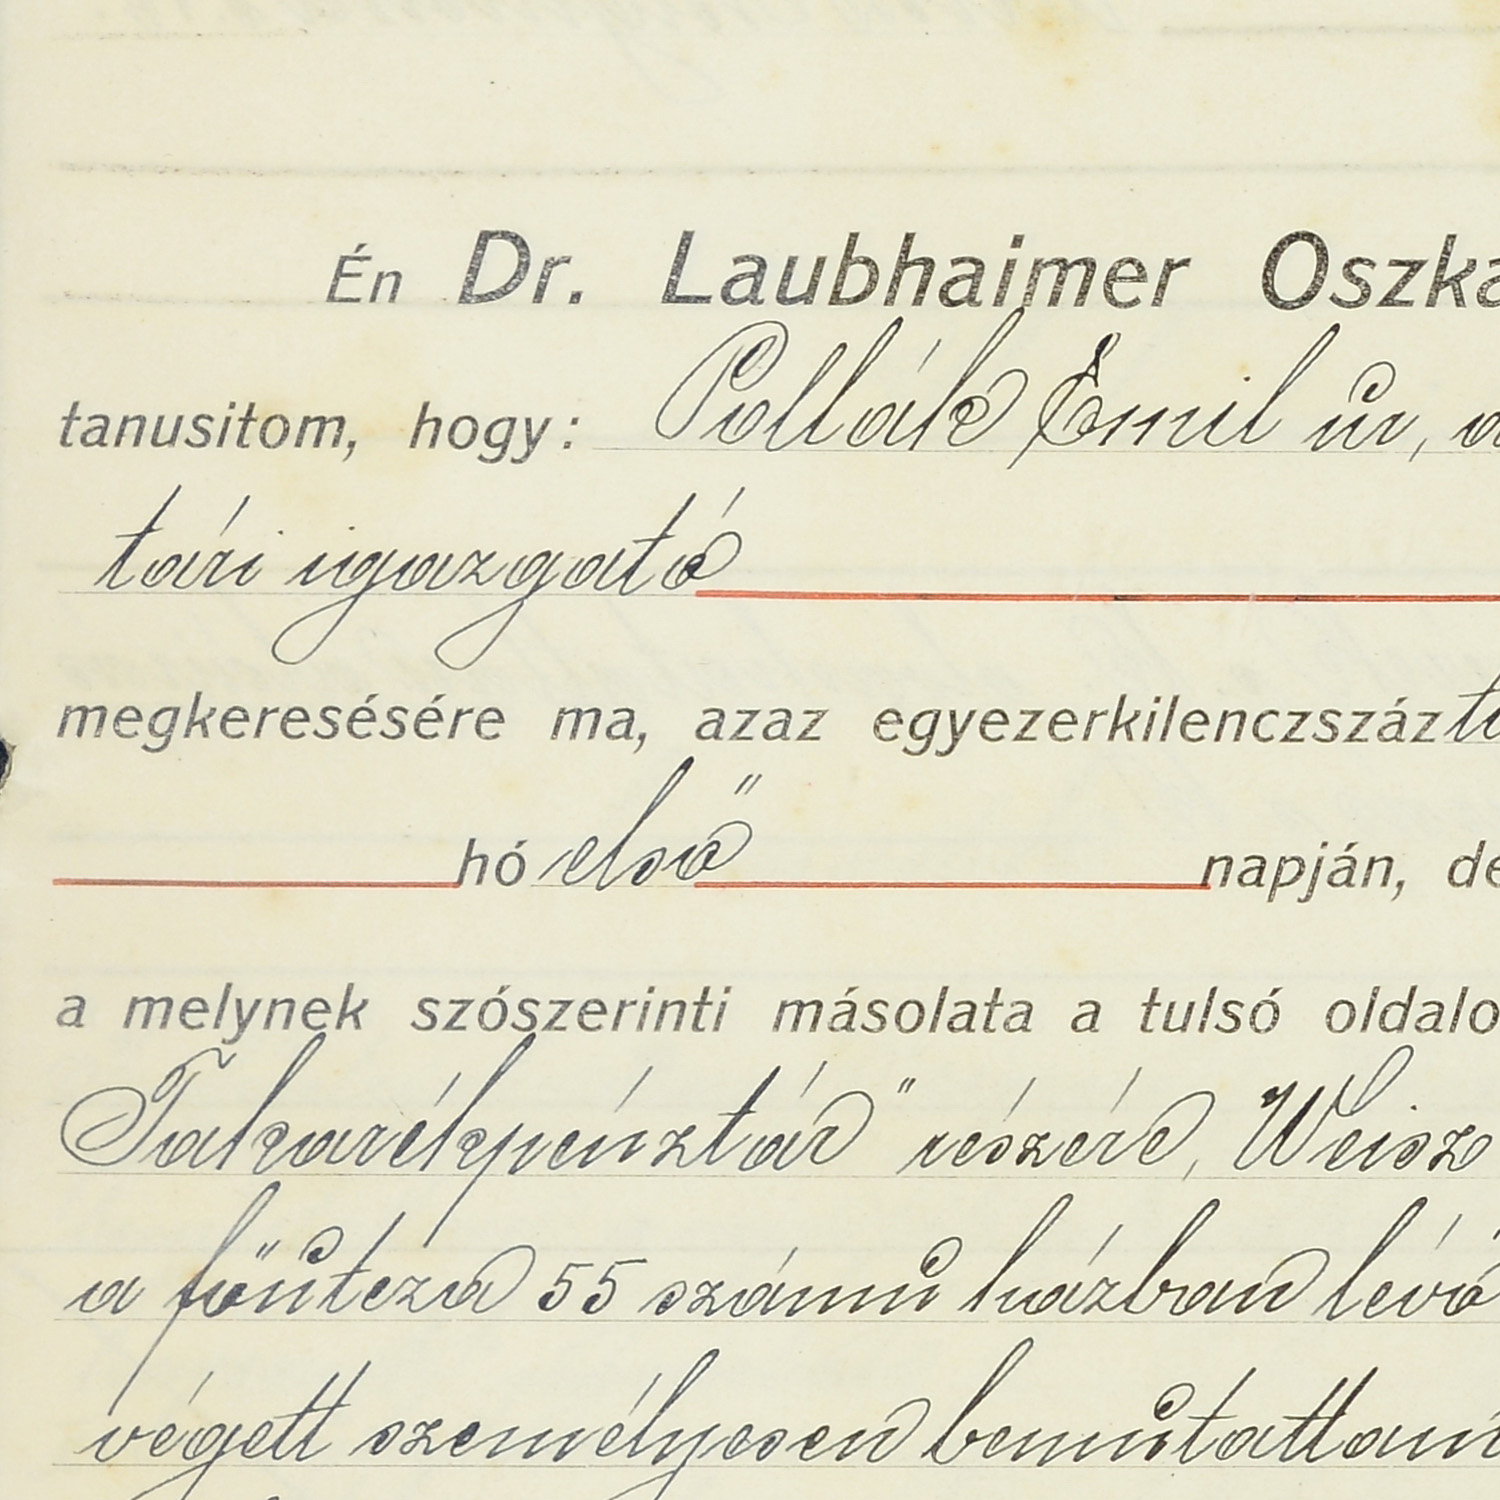 Én Dr. Laubhaimer Oszká
tanusitom, hogy: Pollák Emil úr, a
tári igazgató
megkeresésére ma, azaz egyezerkilenczszázti
hó első napján, de
a melynek szószerinti másolata a tulsó oldalo
Takarékpénztár" részére, Weisz
a főutcza 55 számu házban lévő
végett személyesen bemutattam